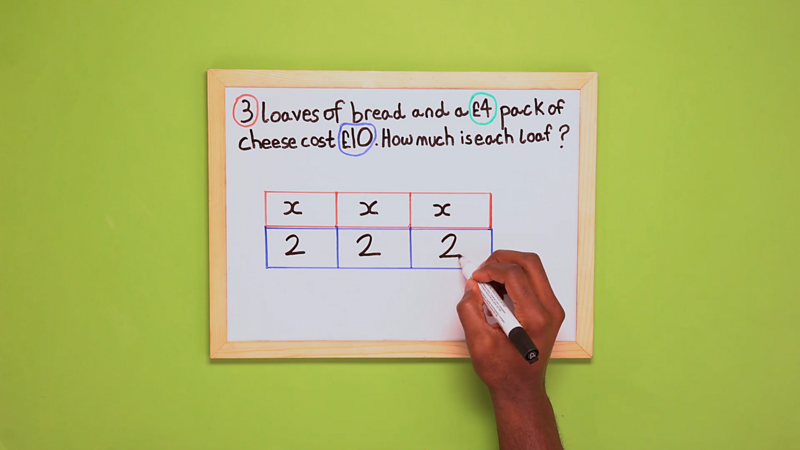 3 loaves of bread and a £4 pack of
cheese cost £10. How much is each loaf?
x x x
2 2 2